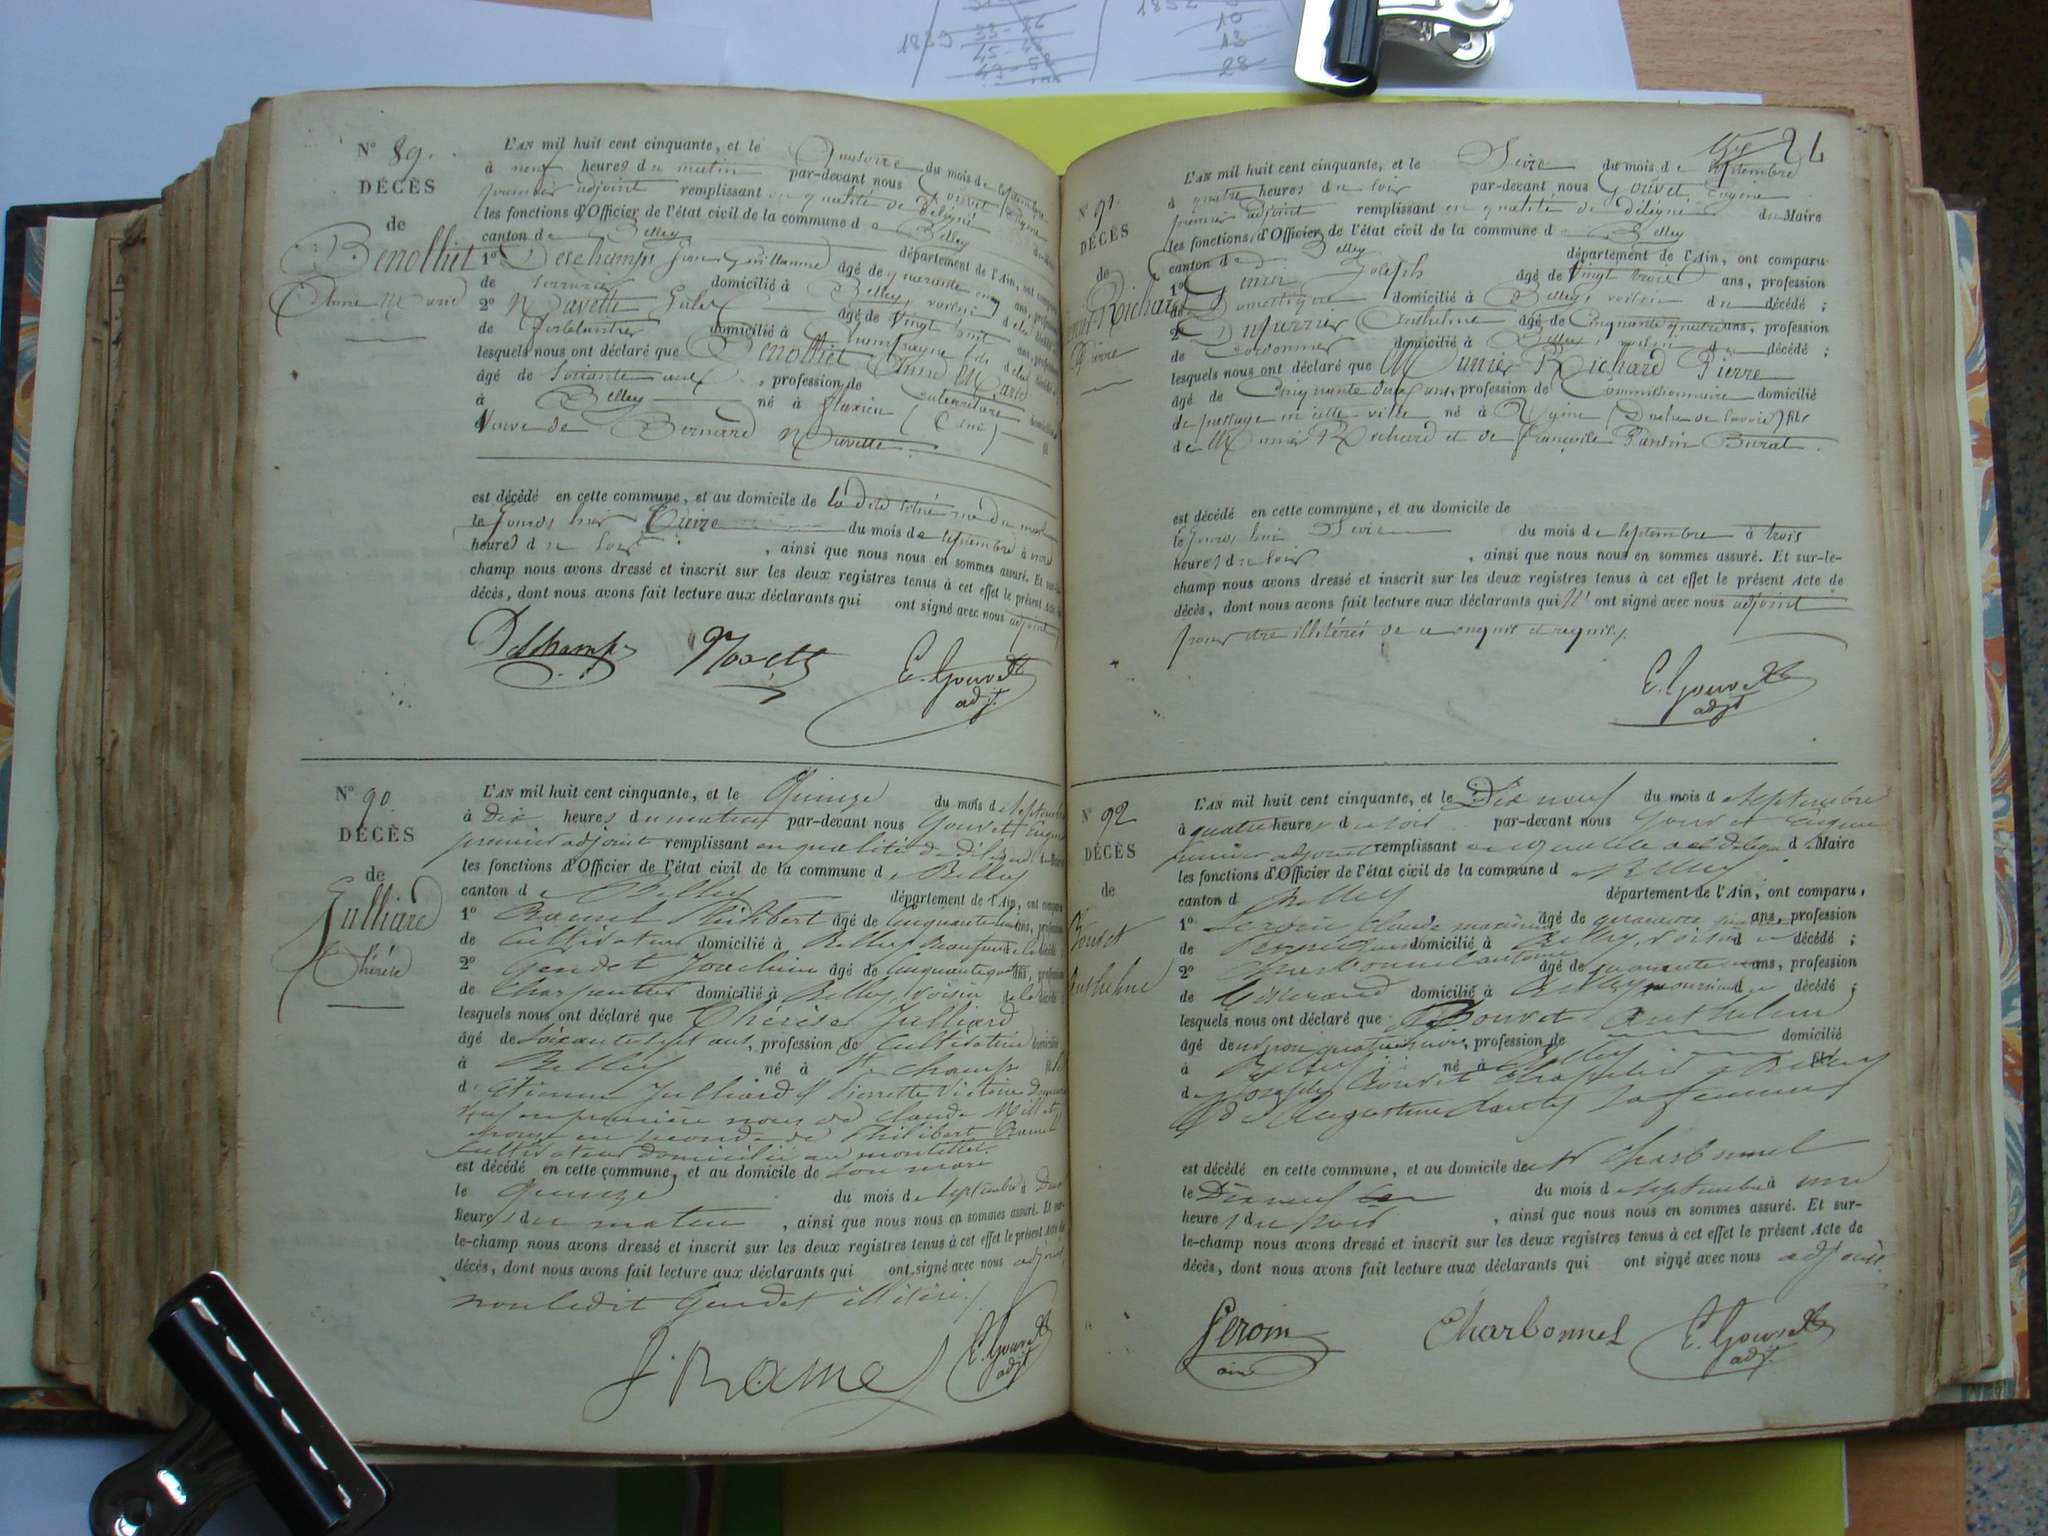 1839 33-36
45-48
49-52
1852
10
13
28
N° 89.
DÉCÈS
de
Benolliet
Anne Marie
L'AN mil huit cent cinquante, et le Quatorze du mois de septembre
à neuf heures du matin par-devant nous Gouvet Eugène
premier adjoint remplissant en qualité de délégué du
les fonctions d'Officier de l'état civil de la commune de Belley
canton de Belley département de l'Ain, ont comparu
1° Deschamps Jean Guillaume âgé de quarante cinq ans, profession
de serrurier domicilié à Belley, voisin de la décédé
2° Navette âgé de vingt huit ans, profession
de ferblantier domicilié à Champagne fils de la
lesquels nous ont déclaré que Benolliet Anne Marie
âgé de soixante ans, profession de couturière domicilié
à Belley né à Fluxieu (Ain)
Veuve de Bernard Navette.
est décédé en cette commune, et au domicile de la dite
le jourd'hui Treize du mois de septembre à onze
heures du soir, ainsi que nous nous en sommes assuré. Et sur-le-
champ nous avons dressé et inscrit sur les deux registres tenus à cet effet le présent Acte de
décès, dont nous avons fait lecture aux déclarants qui ont signé avec nous adjoint
Deschamps Navette E. Gouvet
adjt
N° 90
DÉCÈS
de
Julliard
Thérèse
L'AN mil huit cent cinquante, et le Quinze du mois de septembre
à dix heures du matin par-devant nous Gouvet Eugène
premier adjoint remplissant en qualité de délégué du Maire
les fonctions d'Officier de l'état civil de la commune de Belley
canton de Belley département de l'Ain, ont comparu
1° Ramel Philibert âgé de cinquante ans, profession
de cultivateur domicilié à Belley de la décédé
2° Gendet Joachim âgé de cinquante quatre ans, profession
de charpentier domicilié à Belley, voisin de la décédé
lesquels nous ont déclaré que Thérèse Julliard
âgé de soixante sept ans, profession de cultivatrice domicilié
à Belley né à St Champ fille
d'Etienne Julliard & Pierrette Victoire
en première noces de Claude Millet
épouse en seconde de Philibert Ramel
cultivateur domicilié au
est décédé en cette commune, et au domicile de son mari
le Quinze du mois de septembre à deux
heures du matin, ainsi que nous nous en sommes assuré. Et sur-
le-champ nous avons dressé et inscrit sur les deux registres tenus à cet effet le présent Acte de
décès, dont nous avons fait lecture aux déclarants qui ont signé avec nous adjoint
non ledit Gendet illitéré./
Ramel E. Gouvet
adjt
24
N° 91
DÉCÈS
de
Munier-Richard
Pierre
L'AN mil huit cent cinquante, et le Seize du mois de septembre
à quatre heures du soir par-devant nous Gouvet Eugène
premier adjoint remplissant en qualité de délégué du Maire
les fonctions d'Officier de l'état civil de la commune de Belley
canton de Belley département de l'Ain, ont comparu
1° Genin Joseph âgé de vingt trois ans, profession
de Domestique domicilié à Belley, voisin du décédé ;
2° Duperrier Anthelme âgé de cinquante quatre ans, profession
de Cordonnier domicilié à Belley, voisin du décédé ;
lesquels nous ont déclaré que Munier-Richard Pierre
âgé de cinquante deux ans, profession de Commissionnaire domicilié
de passage en cette ville né à Ugine (Duché de Savoie) fils
de Munier Richard et de Françoise Burat.
est décédé en cette commune, et au domicile de
le jourd'hui Seize du mois de septembre à trois
heures du soir, ainsi que nous nous en sommes assuré. Et sur-le-
champ nous avons dressé et inscrit sur les deux registres tenus à cet effet le présent Acte de
décès, dont nous avons fait lecture aux déclarants qui n'ont signé avec nous adjoint
pour être illitérés de ce enquis et requis./
E. Gouvet
adjt
N° 92
DÉCÈS
de
Bouvet
Anthelme
L'AN mil huit cent cinquante, et le Dix neuf du mois de septembre
à quatre heures du soir par-devant nous Gouvet Eugène
premier adjoint remplissant en qualité de délégué du Maire
les fonctions d'Officier de l'état civil de la commune de Belley
canton de Belley département de l'Ain, ont comparu,
1° Peroin Claude âgé de quarante ans, profession
de Perruquier domicilié à Belley, voisin du décédé ;
2° Charbonnel Antoine âgé de quarante ans, profession
de Tisserand domicilié à Belley nourricier du décédé ;
lesquels nous ont déclaré que Bouvet Anthelme
âgé d'environ quatre mois, profession de domicilié
à Belley né à Belley fils
de Joseph Bouvet chapelier à Belley
& de Augustine sa femme
est décédé en cette commune, et au domicile de Charbonnel
le Dix neuf du mois de septembre à une
heure du soir, ainsi que nous nous en sommes assuré. Et sur-
le-champ nous avons dressé et inscrit sur les deux registres tenus à cet effet le présent Acte de
décès, dont nous avons fait lecture aux déclarants qui ont signé avec nous adjoint.
Peroin
ainé
Charbonnel E. Gouvet
adjt